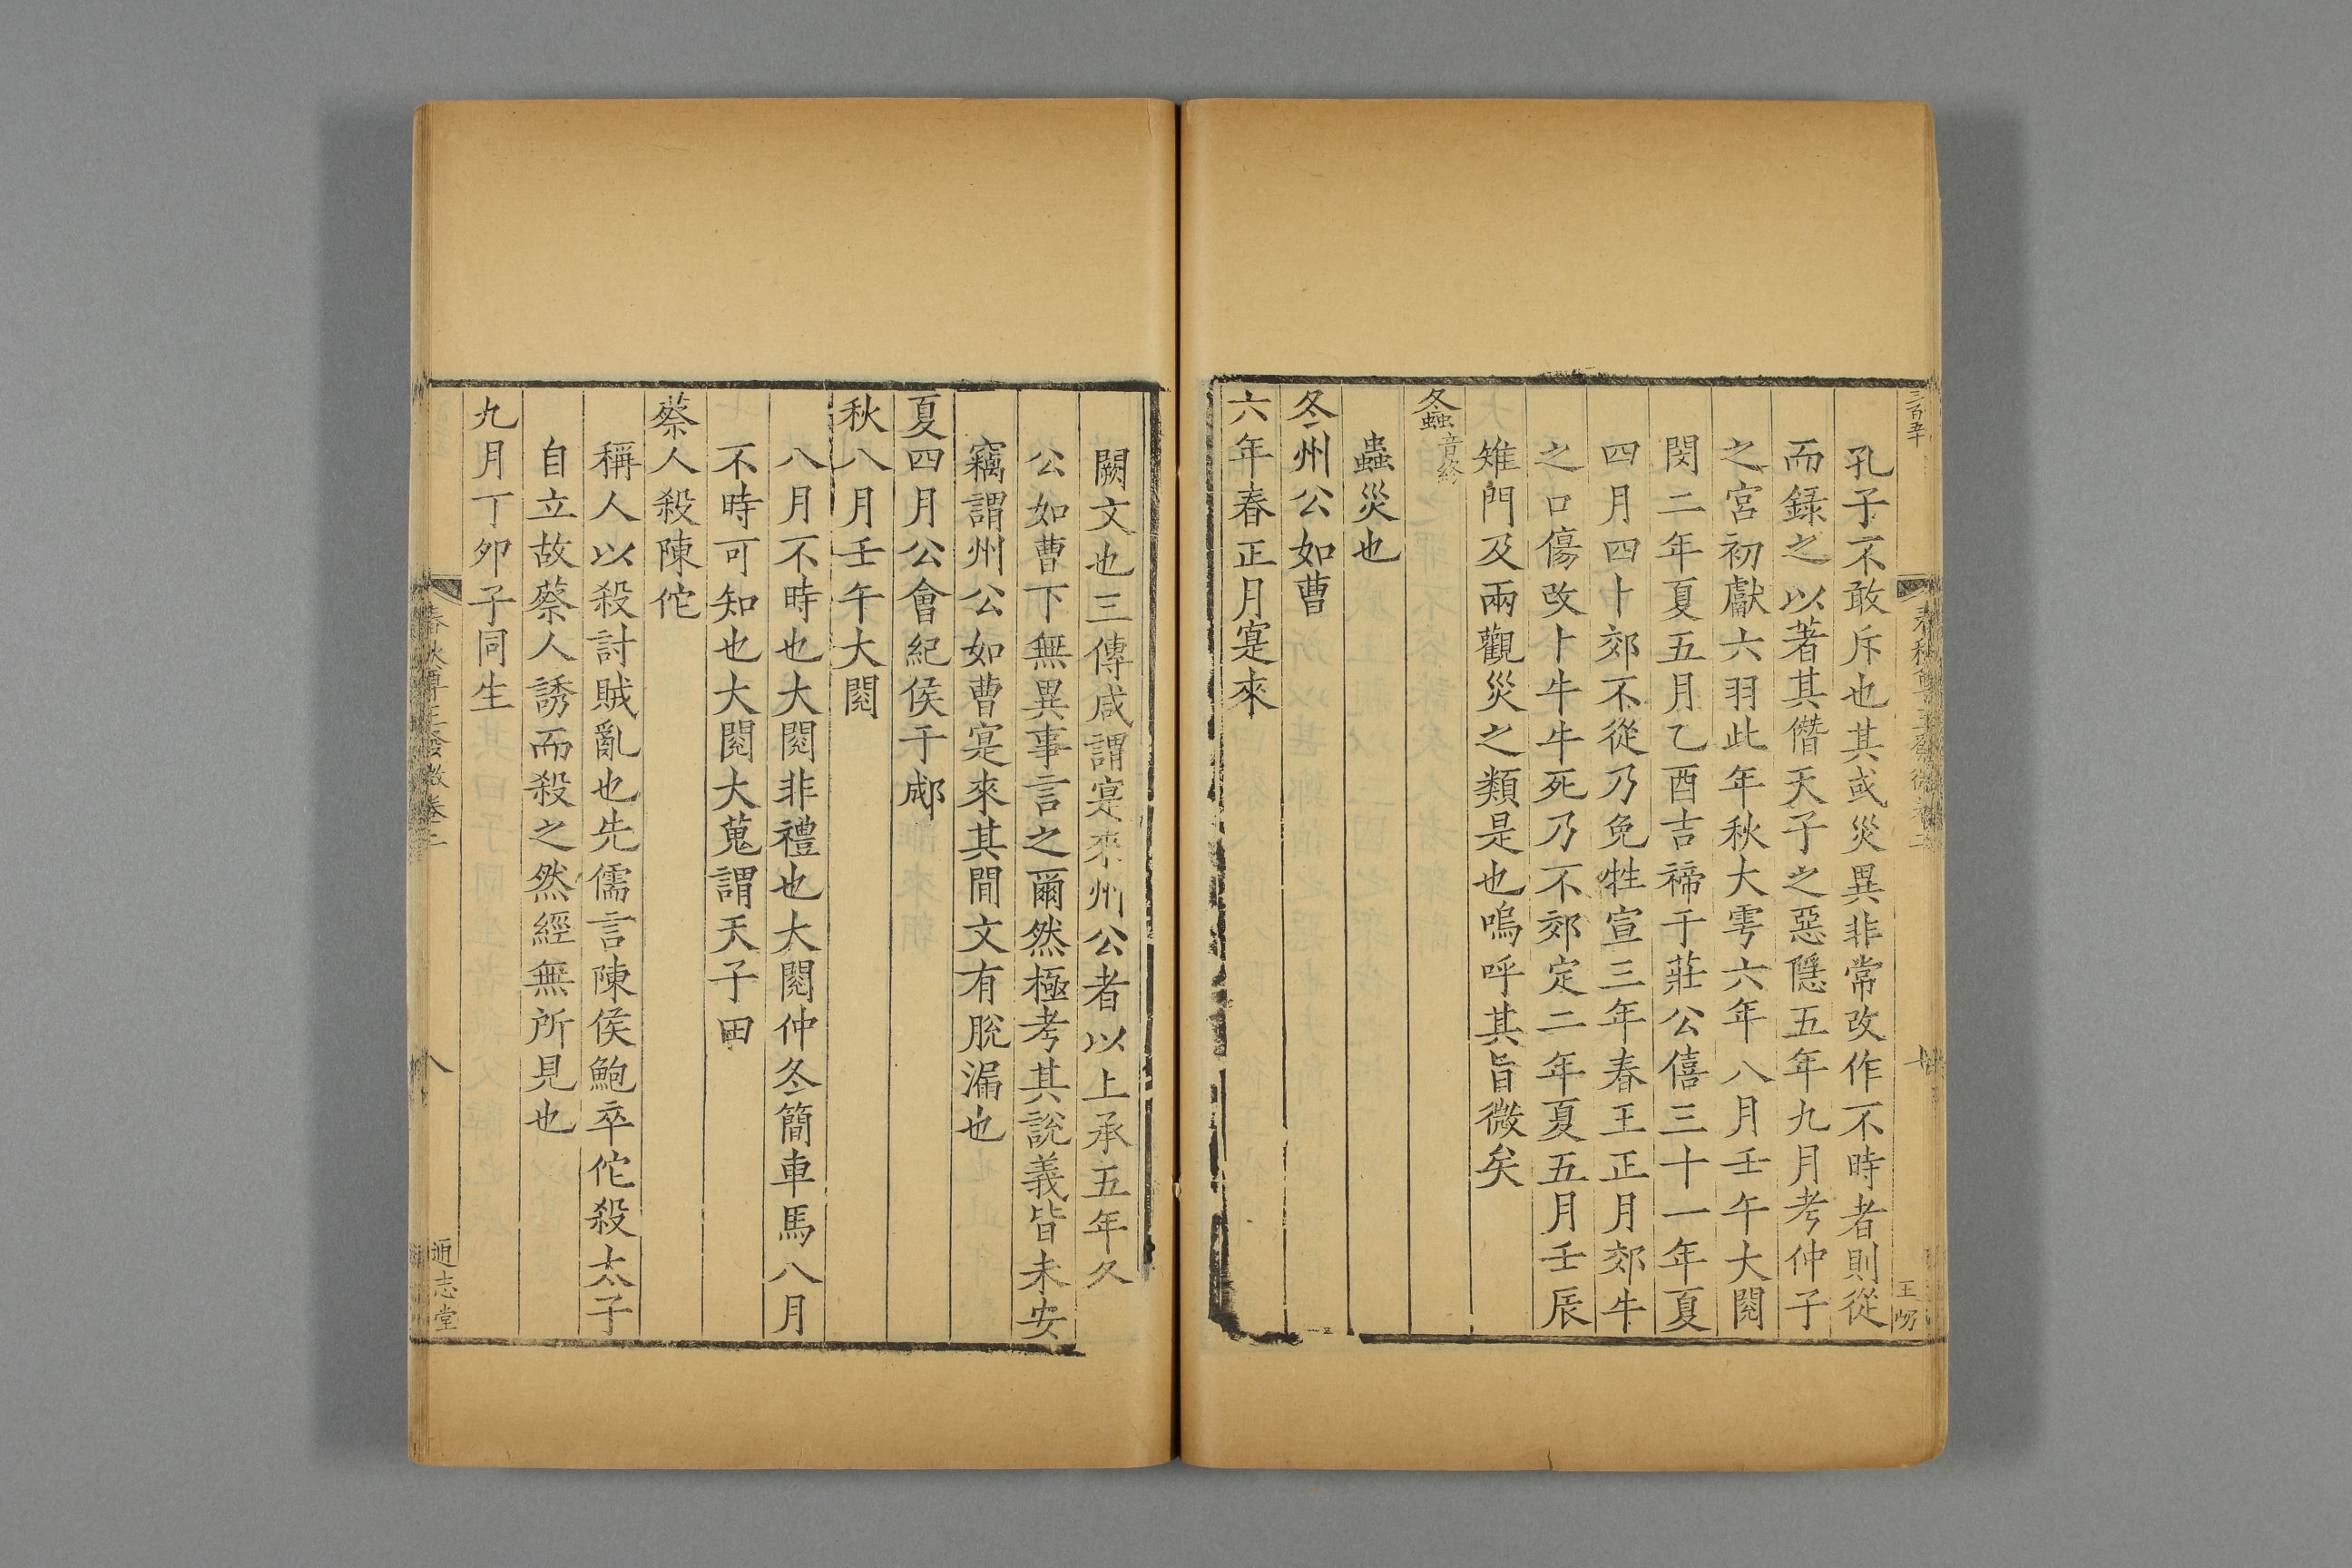 三百五十
孔子不敢斥也其或災異非常改作不時者則從
而録之以著其僭天子之惡隱五年九月考仲子
之宮初獻六羽此年秋大雩六年八月壬午大閱
閔二年夏五月乙酉吉禘于莊公僖三十一年夏
四月四卜郊不從乃免牲宣三年春王正月郊牛
之口傷改卜牛牛死乃不郊定二年夏五月壬辰
雉門及兩觀災之類是也嗚呼其旨微矣
螽音終
蟲災也
冬州公如曹
六年春正月寔來
闕文也三傳咸謂寔來州公者以上承五年冬
公如曹下無異事言之爾然極考其說義皆未安
竊謂州公如曹寔來其閒文有脫漏也
夏四月公會紀侯于郕
秋八月壬午大閱
八月不時也大閱非禮也大閱仲冬簡車馬八月
不時可知也大閱大蒐謂天子田
蔡人殺陳佗
稱人以殺討賊亂也先儒言陳侯鮑卒佗殺太子
自立故蔡人誘而殺之然經無所見也
九月丁卯子同生
春秋尊王發微卷二
八
通志堂